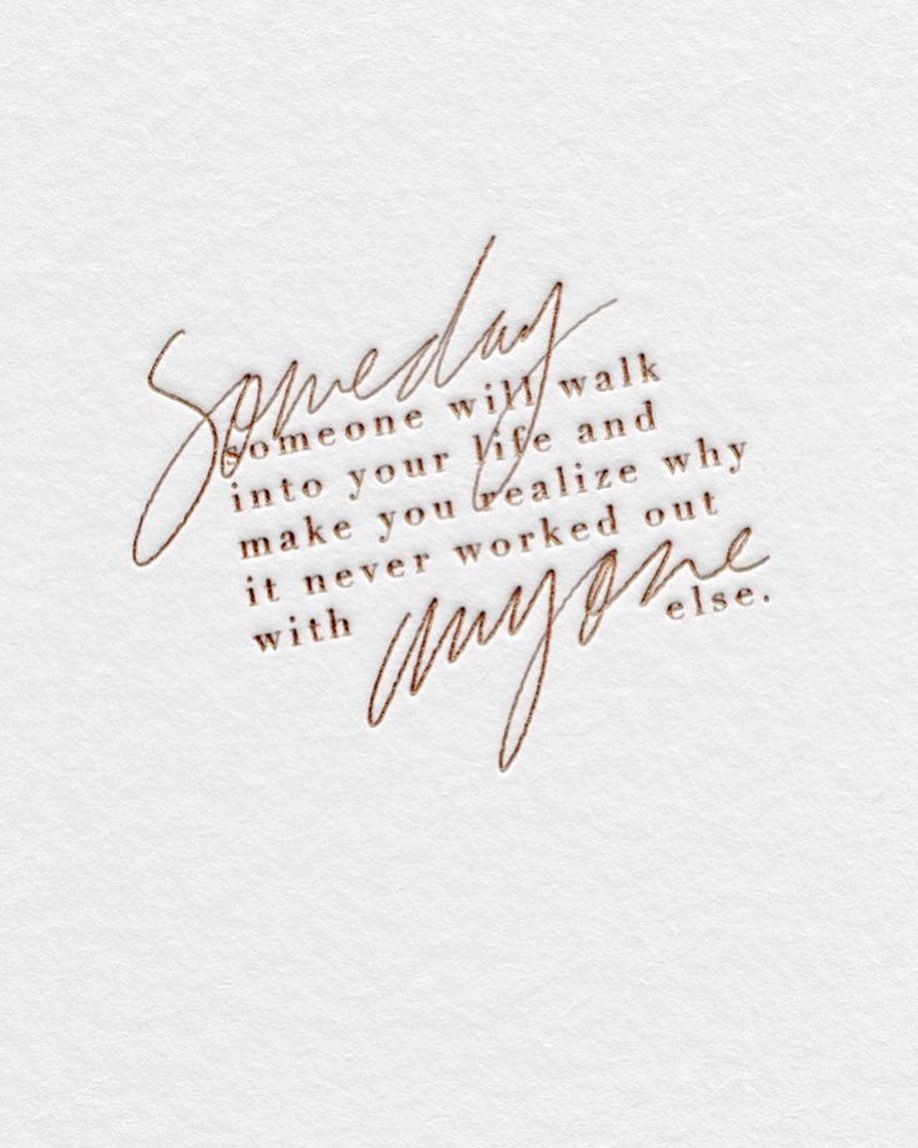 Someday
someone will walk
into your life and
make you realize why
it never worked out
with anyone else.